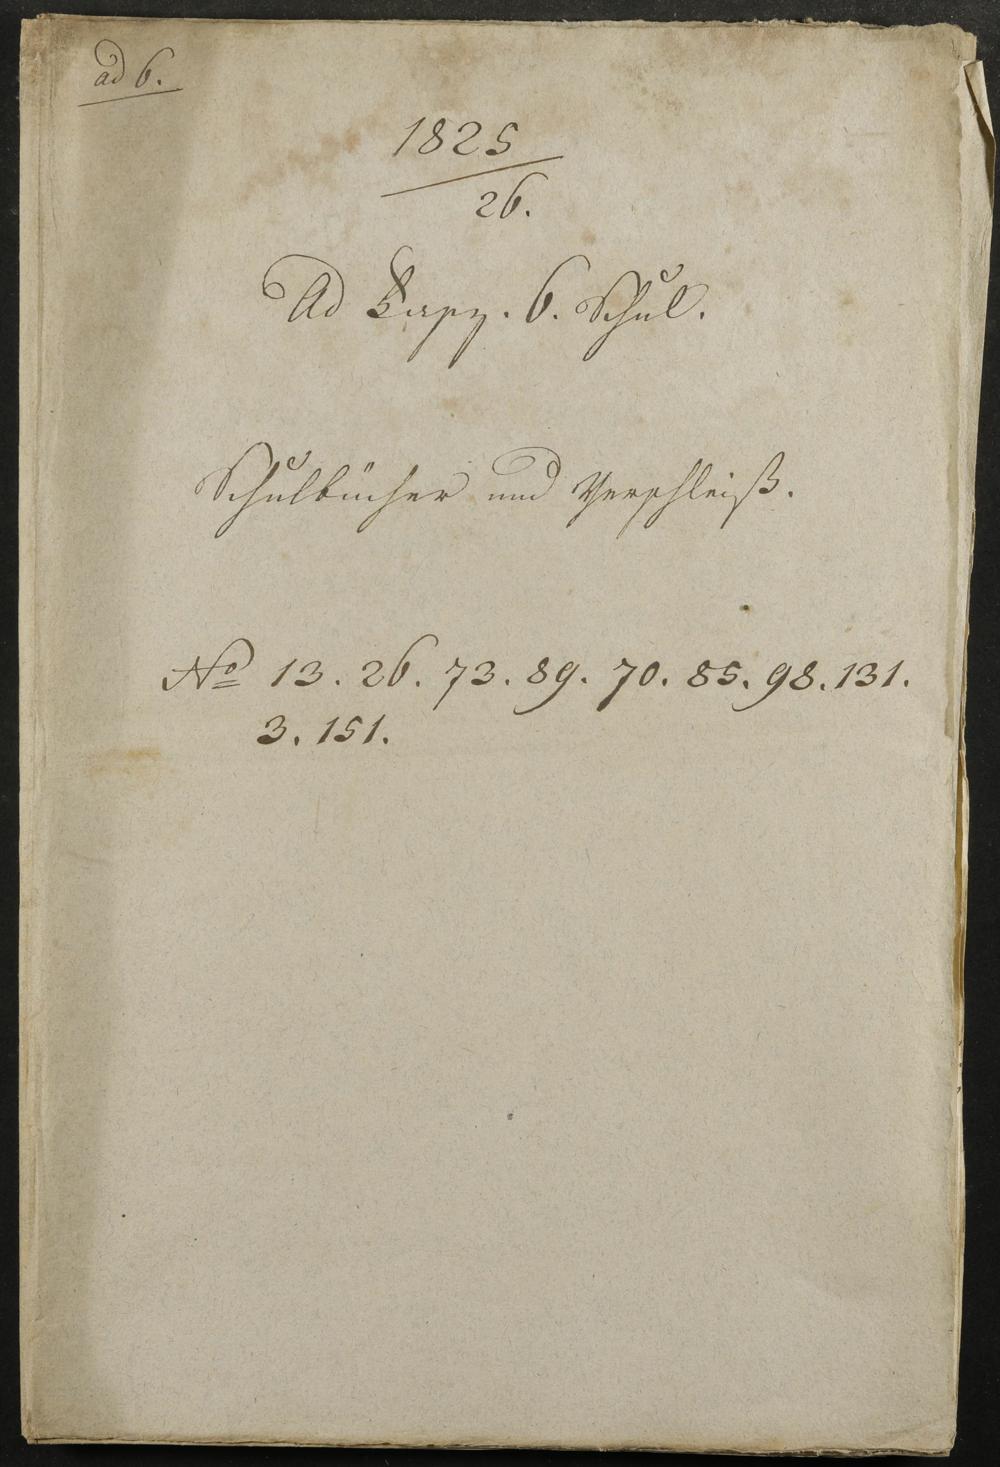 ad 6.
1825
26.
Ad Fasz. 6. Schul.
Schulbücher und Verschleiß.
No 13. 26. 73. 89. 70. 85. 98. 131.
3. 151.